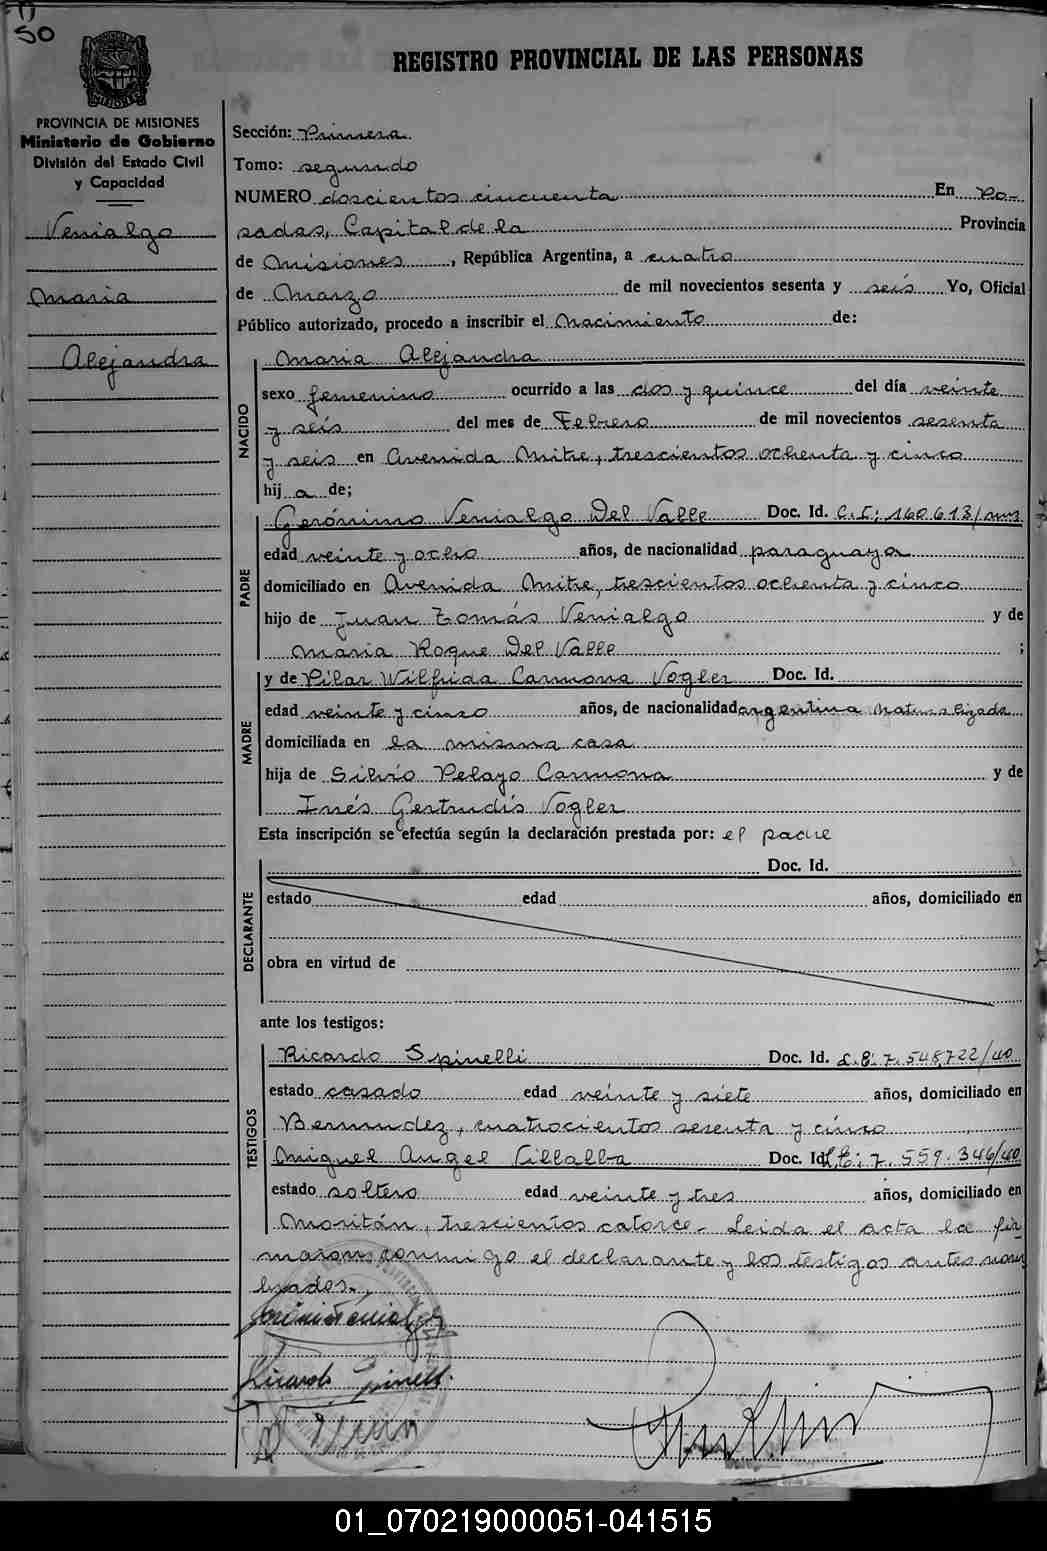 50
REGISTRO PROVINCIAL DE LAS PERSONAS
MISIONES
PROVINCIA DE MISIONES
Ministerio de Gobierno
División del Estado Civil
y Capacidad
Venialgo
Maria
Alejandra
Sección: Primera
Tomo: segundo
NUMERO doscientos cincuenta En Po-
sadas, Capital de la Provincia
de Misiones, República Argentina, a cuatro
de Marzo de mil novecientos sesenta y seis Yo, Oficial
Público autorizado, procedo a inscribir el Nacimiento de:
NACIDO
Maria Alejandra
sexo femenino ocurrido a las dos y quince del día veinte
y seis del mes de Febrero de mil novecientos sesenta
y seis en Avenida Mitre, trescientos ochenta y cinco
hij a de;
PADRE
Gerónimo Venialgo Del Valle Doc. Id. C.I: 160.613/
edad veinte y ocho años, de nacionalidad paraguaya
domiciliado en Avenida Mitre, trescientos ochenta y cinco
hijo de Juan Tomás Venialgo y de
Maria Roque Del Valle ;
MADRE
y de Pilar Wilfrida Carmona Vogler Doc. Id.
edad veinte y cinco años, de nacionalidad argentina naturalizada
domiciliada en la misma casa
hija de Silvio Pelayo Carmona y de
Inés Gertrudis Vogler
Esta inscripción se efectúa según la declaración prestada por: el padre
DECLARANTE
Doc. Id.
estado edad años, domiciliado en
obra en virtud de
ante los testigos:
TESTIGOS
Ricardo Spinelli Doc. Id. L.E: 7.548.722/40
estado casado edad veinte y siete años, domiciliado en
Bermudez, cuatrocientos sesenta y cinco
Miguel Angel Villalba Doc. Id. L.E: 7.559.346/40
estado soltero edad veinte y tres años, domiciliado en
Moritán, trescientos catorce. Leida el acta la fir
maron conmigo el declarante y los testigos antes nom
brados.
Ricardo Spinelli
01_070219000051-041515